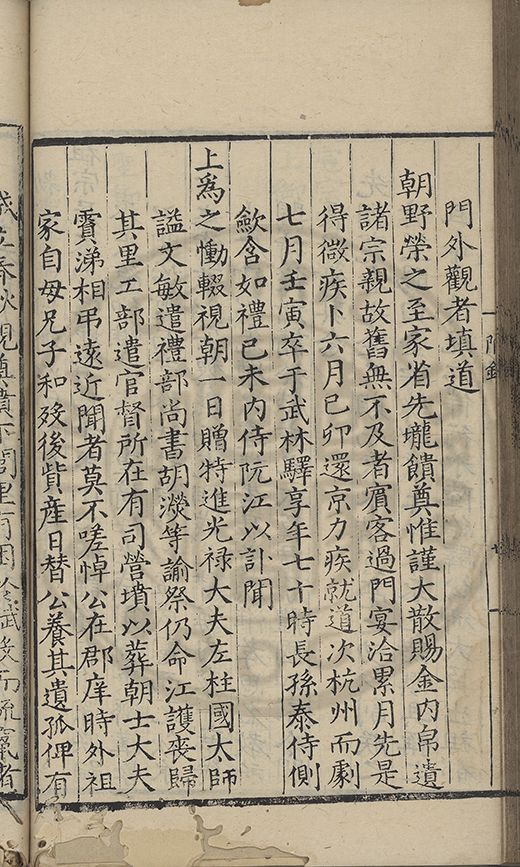 門外觀者填道
朝野榮之至家省先壠饋奠惟謹大散賜金內帛遺
諸宗親故舊無不及者賓客過門宴洽累月先是
得微疾卜六月己卯還京力疾就道次杭州而劇
七月壬寅卒于武林驛享年七十時長孫泰侍側
歛含如禮已未內侍阮江以訃聞
上為之慟輟視朝一日贈特進光禄大夫左柱國太師
謚文敏遣禮部尚書胡濙等諭祭仍命江護喪歸
其里工部遣官督所在有司營墳以葬朝士大夫
賷涕相弔遠近聞者莫不嗟悼公在郡庠時外祖
家自母兄子和歿後貲産日替公養其遺孤俾有